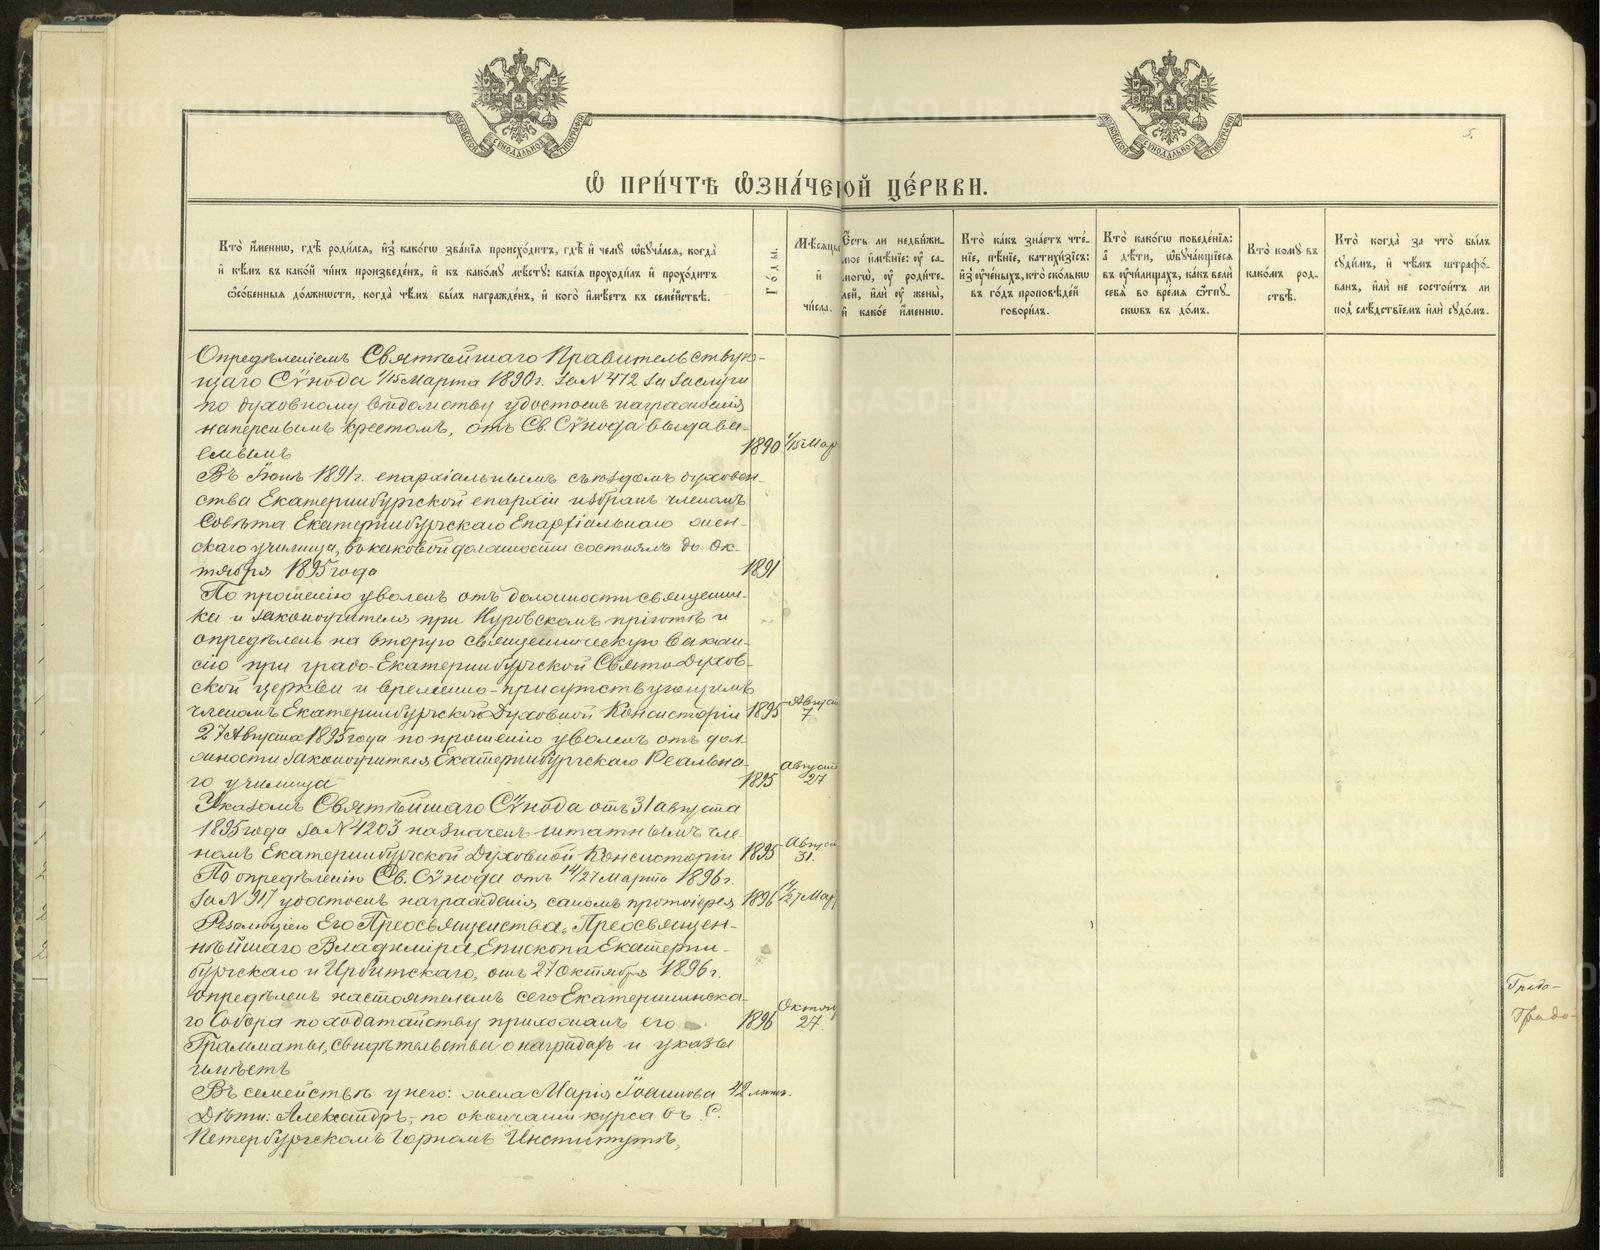 МОСКОВСКОЙ СѴНОДАЛЬНОЙ ТИПОГРАФІИ
МОСКОВСКОЙ СѴНОДАЛЬНОЙ ТИПОГРАФІИ
5.
Ѡ ПРИ́ЧТѢ Ѡ҆ЗНА́ЧЕ ОЙ ЦЕ́РКВИ.
Кто̀ и҆́менно, гдѣ̀ роди́лсѧ, и҆з̾ како́гѡ зва́нїѧ происхо́дитъ, гдѣ̀ и҆ чему̀ ѡ҆бꙋча́лсѧ, когда̀
и҆ кѣ́мъ въ како́й чи́нъ произведе́нъ, и҆ къ како́мꙋ мѣ́стꙋ: какі̑ѧ проходи́лъ и҆ прохо́дитъ
ѻ҆со́бенныѧ до́лжности, когда̀ чѣ́мъ бы́лъ награжде́нъ, и҆ кого̀ и҆мѣ́етъ въ семе́йствѣ.
Го́ды.
Мѣ́сѧцы
и҆
чи́сла.
Є҆́сть ли недви́жи-
мое и҆мѣ́нїе: ᲂу҆ са-
могѡ̀, ᲂу҆ роди́те-
лей, и҆лѝ ᲂу҆ жены̀,
и҆ како́е и҆́менно.
Кто̀ ка́къ зна́етъ чте́-
нїе, пѣ́нїе, катихи́зїсъ:
и҆з̾ ᲂу҆че́ныхъ, кто̀ ско́лькѡ
въ го́дъ проповѣ́дей
говори́лъ.
Кто̀ како́гѡ поведе́нїѧ:
а҆ дѣ́ти, ѡ҆бꙋча́ющїесѧ
въ ᲂу҆чи́лищахъ, ка́къ велѝ
себѧ̀ во вре́мѧ ѿпꙋ-
сковъ въ до́мъ.
Кто̀ комꙋ̀ въ
како́мъ род-
ствѣ̀.
Кто̀ когда̀ за что̀ бы́лъ
сꙋди́мъ, и҆ чѣ́мъ штрафо́-
ванъ, и҆лѝ не состои́тъ ли
под̾ слѣ́дствїемъ и҆лѝ сꙋдо́мъ.
Опредѣленіемъ Святѣйшаго Правительствую-
щаго Сѵнода 1/15 Марта 1890 г. за N 472 за заслуги
по духовному вѣдомству удостоенъ награжденія
наперснымъ крестомъ, отъ Св. Сѵнода выдава-
емымъ 1890 1/15 Мар
Въ Іюнѣ 1891 г. епархіальнымъ съѣздомъ духовен-
ства Екатеринбургской епархіи избранъ членомъ
Совѣта Екатеринбургскаго Епархіальнаго жен-
скаго училища, въ каковой должности состоялъ до Ок-
тября 1895 года 1891
По прошенію уволенъ отъ должности священни-
ка и законоучителя при Нуровскомъ пріютѣ и
опредѣленъ на вторую священническую вакан-
сію при градо-Екатеринбургской Свято-Духов-
ской церкви и временно-присутствующимъ
членомъ Екатеринбургской Духовной Консисторіи 1895 Август 7
27 Августа 1895 года по прошенію уволенъ отъ дол-
жности законоучителя Екатеринбургскаго Реальна-
го училища 1895 Август 27
Указомъ Святѣйшаго Сѵнода отъ 31 августа
1895 года за N 4203 назначенъ штатнымъ чле-
номъ Екатеринбургской Духовной Консисторіи 1895 Август 31.
По опредѣленію Св. Сѵнода отъ 14/27 Марта 1896 г.
за N 917 удостоенъ награжденія саномъ протоіерея 1896 14/27 Мар
Резолюціею Его Преосвященства, Преосвящен-
нѣйшаго Владиміра, Епископа Екатерин-
бургскаго и Ирбитскаго, отъ 27 Октября 1896 г.
опредѣленъ настоятелемъ сего Екатерининска-
го Собора по ходатайству прихожанъ его 1896 Октяб 27.
Грамматы, свидѣтельства о наградахъ и указы
имѣетъ
Въ семействѣ у него: жена Марія Іоаннова 42 лѣтъ.
Дѣти: Александръ, по окончаніи курса въ С.
Петербургскомъ Горномъ Институтѣ,
Градо-
Градо-
METRIKI.GASO-URAL.RU